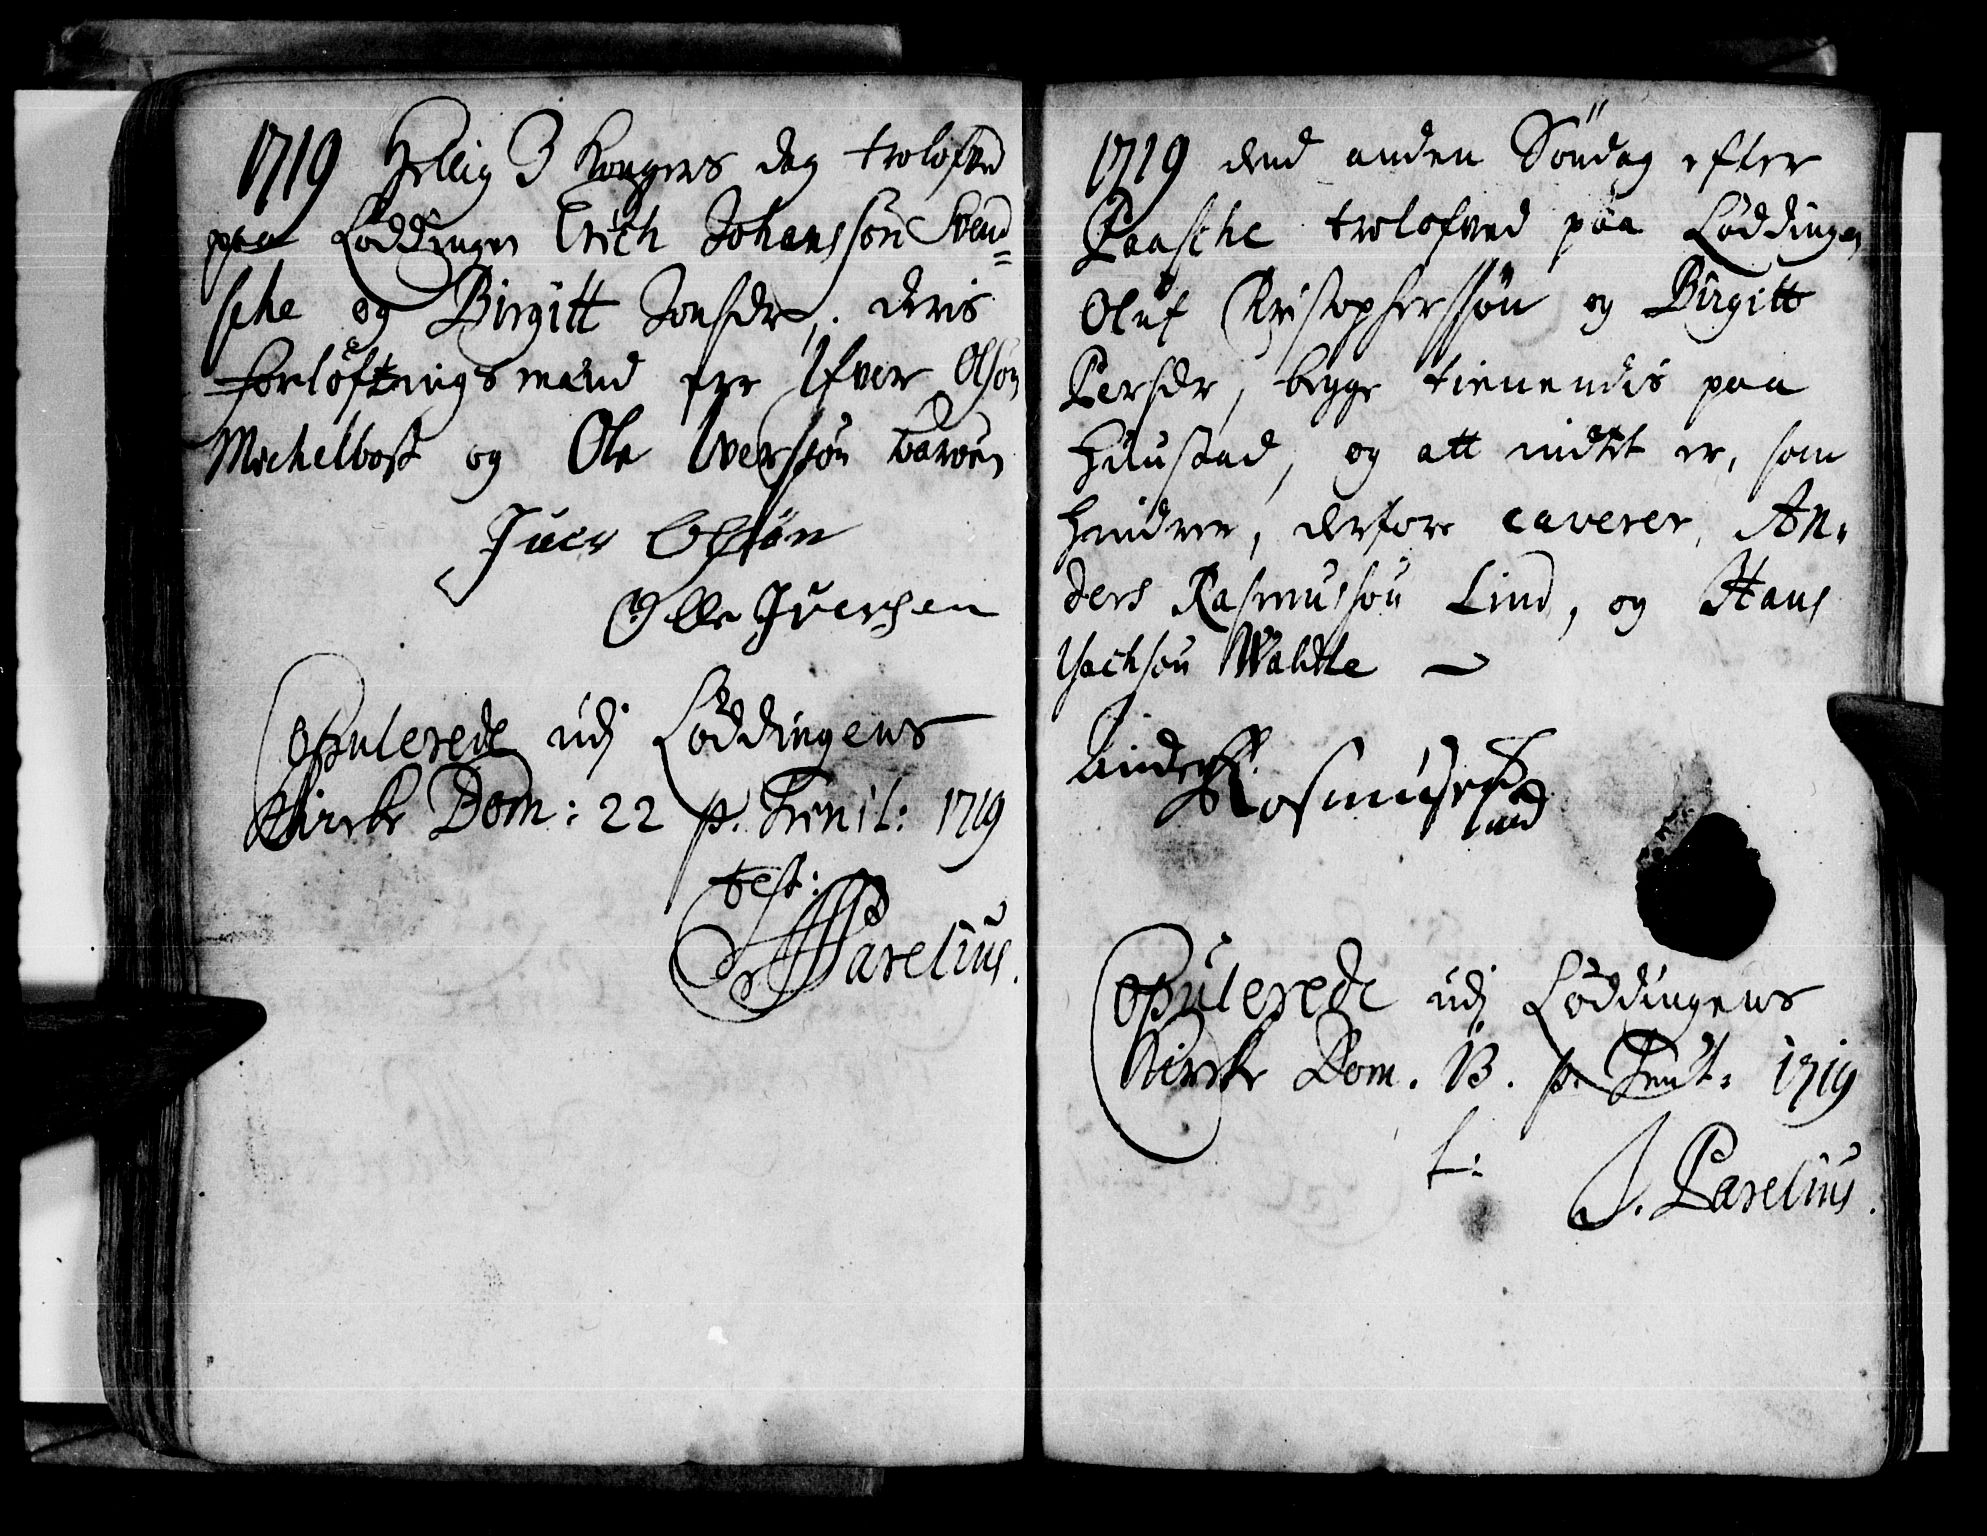 1719 Hellig 3 Kongers dag trolofved
paa Löddingen Erich Johanssön Svend=
sche og Birgitt Jonsdr, deris
forlöftnings mænd ere Ifver Olsön
Mechelbost og Ole Iverssön Barøen
Juer Olssön
Olle Juersen
Copulerede udj Löddingens
Kircke Dom: 22 p. Trinit: 1719
test:
Parelius.
1719 dend anden Söndag efter
Paasche trolofved paa Löddingen
Oluf Christopherssön og Birgitt
Persdr, begge tienendis paa
Huustad, og att indtet er, som
hindrer, derfore caverer An-
ders Rasmussøn Lind, og Hans
Isachsøn Waldte
Anders Rosmusen
Lind
Copulerede udj Löddingens
Kircke Dom. 13. p. Trinit: 1719
t:
J. Parelius.